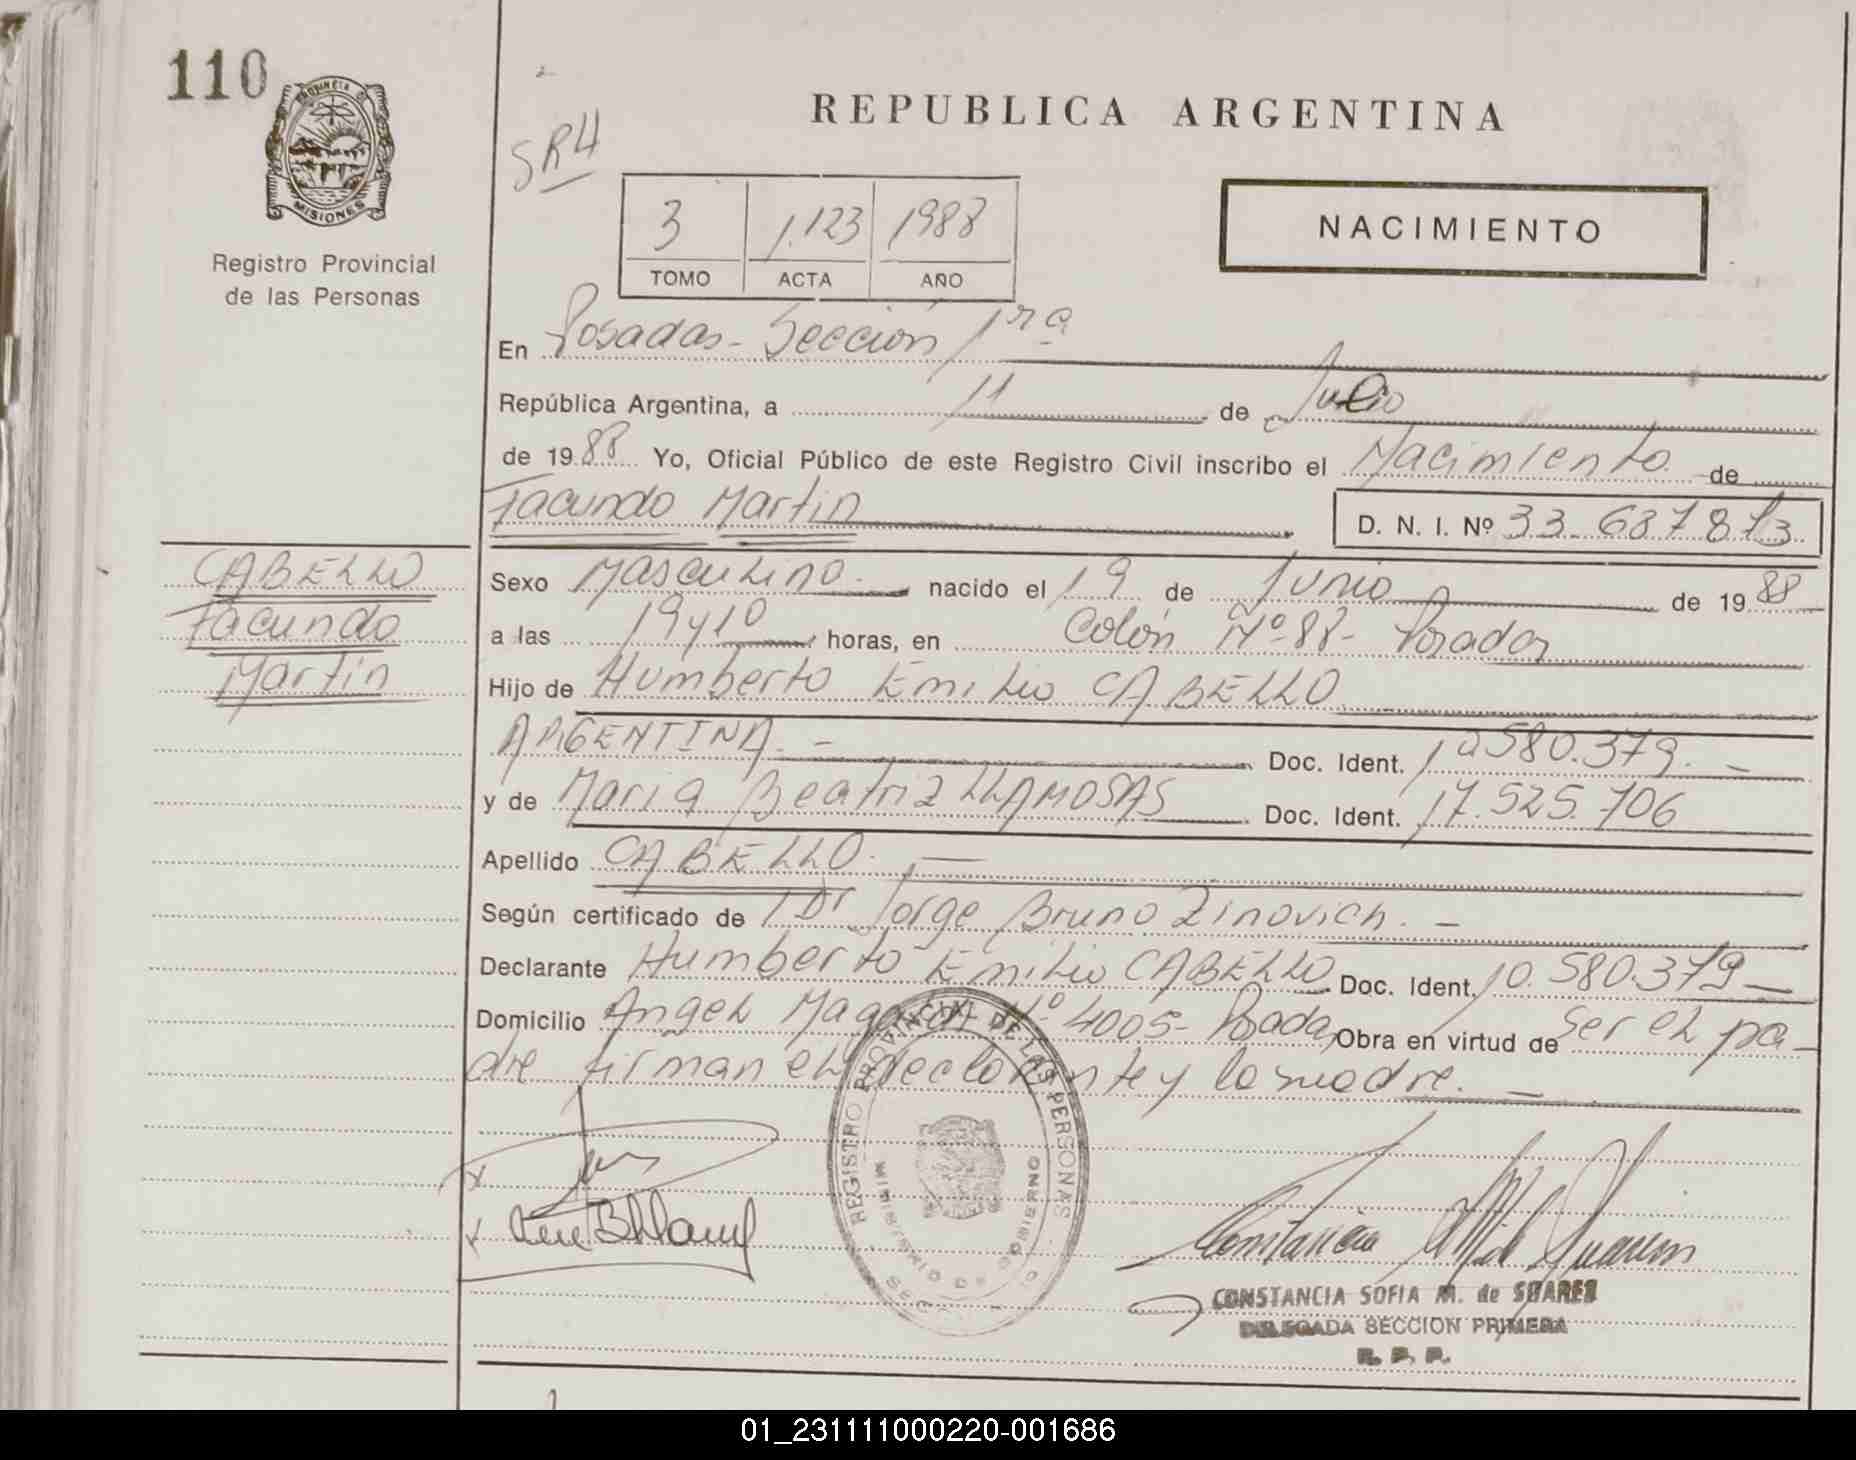 110
PROVINCIA DE
MISIONES
Registro Provincial
de las Personas
SRH
REPUBLICA ARGENTINA
3 1.123 1988
TOMO ACTA AÑO
NACIMIENTO
En Posadas - Sección 1ra
República Argentina, a 11 de Julio
de 1988 Yo, Oficial Público de este Registro Civil inscribo el Nacimiento de
Facundo Martin D. N. I. Nº 33.687873
CABELLO
Facundo
Martin
Sexo Masculino. nacido el 19 de Junio de 1988
a las 19y10 horas, en Colón Nº 88 - Posadas
Hijo de Humberto Emilio CABELLO
ARGENTINA. - Doc. Ident. 10.580.379. -
y de Maria Beatriz LLAMOSAS Doc. Ident. 17.525.706
Apellido CABELLO. -
Según certificado de Dr Jorge Bruno Zinovich. -
Declarante Humberto Emilio CABELLO. Doc. Ident. 10.580.379 -
Domicilio Angel Nº 4005 - Posadas Obra en virtud de Ser el pa-
dre firman el declarante y la madre. -
REGISTRO PROVINCIAL DE LAS PERSONAS
MINISTERIO DE GOBIERNO
CONSTANCIA SOFIA M. de SUAREZ
DELEGADA SECCION PRIMERA
R. P. P.
01_231111000220-001686